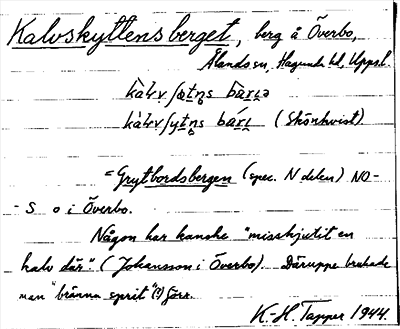 Kalvskyttens berget, berg å Överbo,
Ålands sn, Hagunda hd, Uppsl.
bärı̣ə
bárı̣ (Skönkvist)
= Grytbordsbergen (spec. N delen) NO-
-S o i Överbo.
Någon har kanske "misskjutit en
kalv där". (Johansson i Överbo). Däruppe brukade
man "bränna sprit" (?) förr.
K.-H. Tapper 1944.